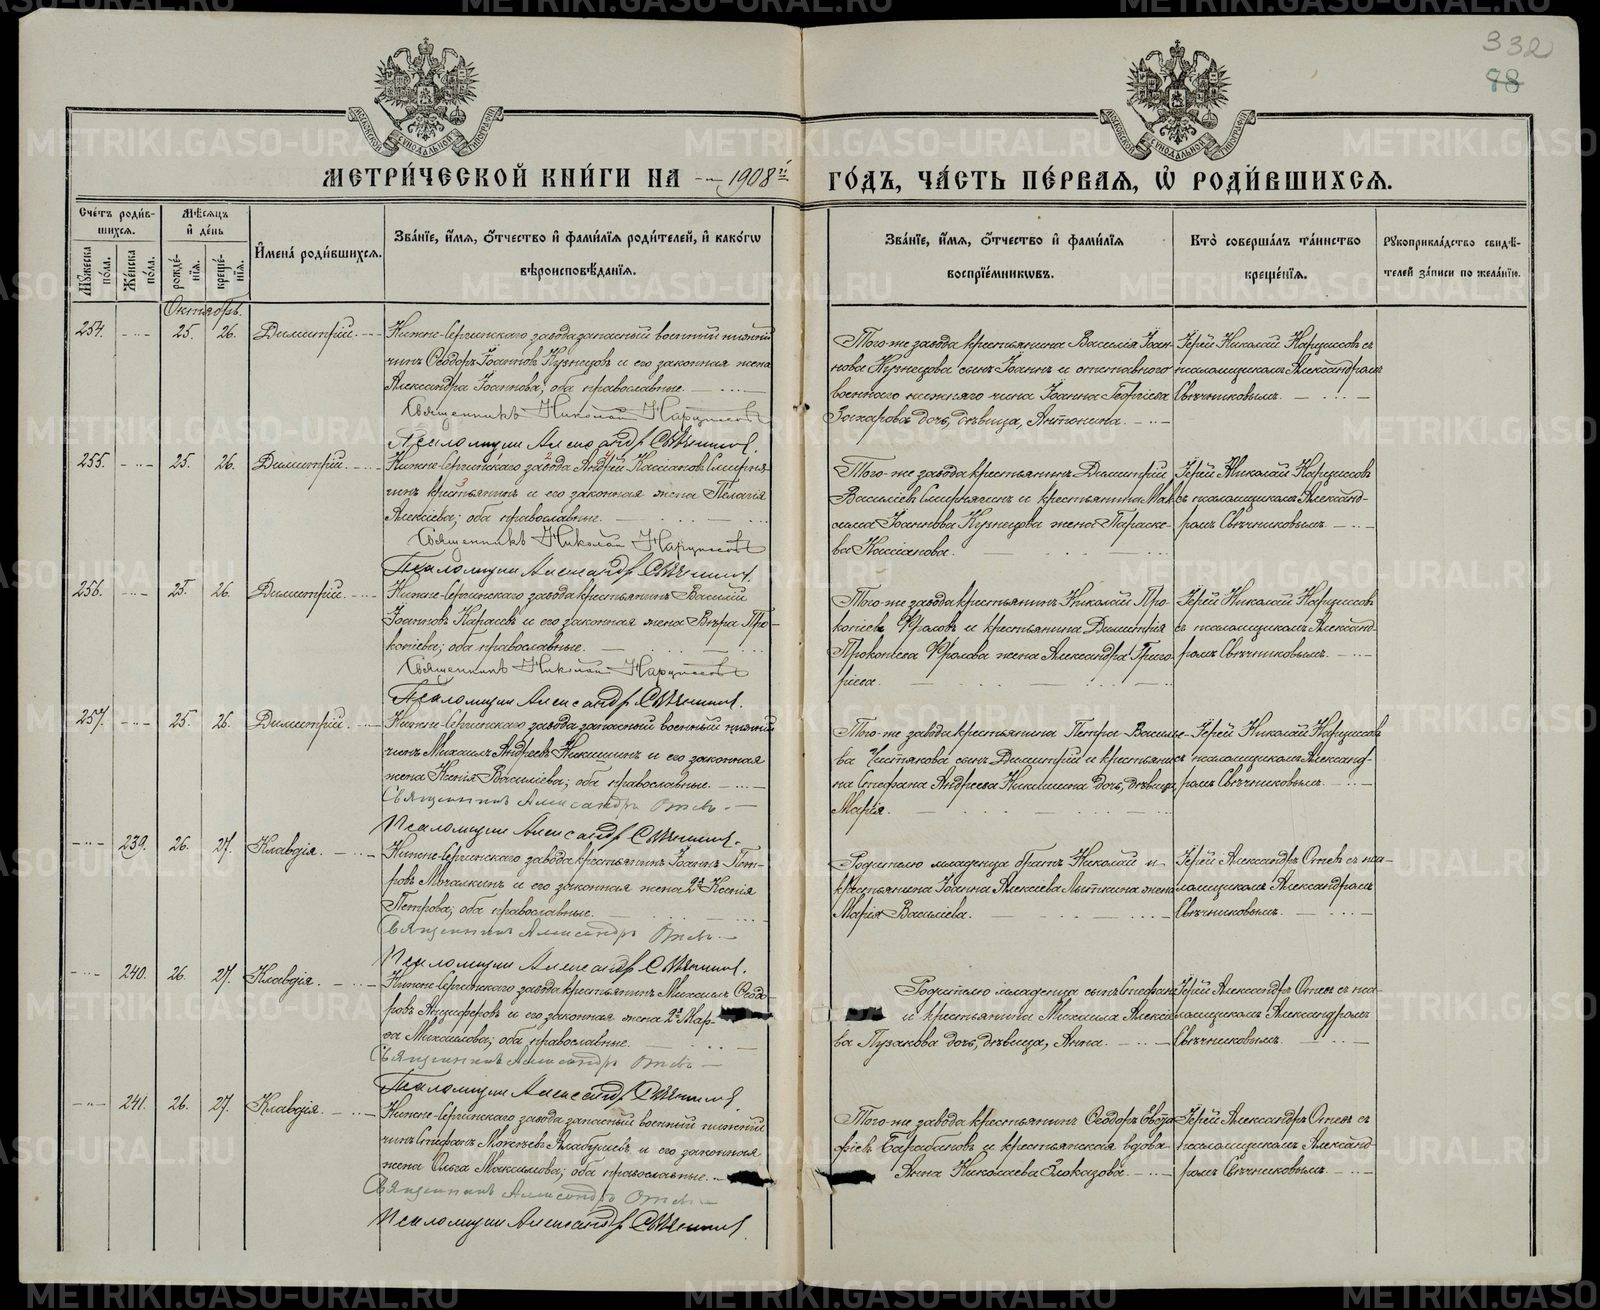 332
78
МЕТРИ́ЧЕСКОЙ КНИ́ГИ НА 1908й ГО́ДЪ, ЧА́СТЬ ПЕ́РВАЯ, Ѡ҆ РОДИ́ВШИХСЯ.
Сче́тъ роди́вшихся.
Мѣсяцъ и҆ де́нь
И҆мена̀ роди́вшихся.
Зва́нїе, и҆́мя, ѻ҆́тчество и҆ фами́лїя роди́телей, и҆ како́гѡ
вѣроисповѣ́данїя.
Зва́нїе, и҆́мя, ѻ҆́тчество и҆ фами́лїя
воспрїе́мникѡвъ.
Кто̀ соверша́лъ та́инство
креще́нїя.
Рꙋкоприкла́дство свидѣ́-
телей за́писи по жела́нїю.
Мꙋ́жеска по́ла.
Же́нска по́ла.
рожде́нїя.
креще́нїя.
Октябрь.
254. 25. 26. Димитрій.
Нижне-Сергинскаго завода запасный военный нижній
чинъ Ѳеодоръ Іоанновъ Кузнецовъ и его законная жена
Александра Іоаннова; оба православные.
Священникъ Николай Нарциссовъ
Псаломщик Александр Свѣчников.
Того-же завода крестьянина Василія Іоан-
нова Кузнецова сынъ Іоаннъ и отставного
военного нижняго чина Іоанна Георгіева
дочь, дѣвица, Антонина.
Іерей Николай Нарциссовъ съ
псаломщикомъ Александромъ
Свѣчниковымъ.
255. 25. 26. Димитрій.
Нижне-Сергинскаго завода Андрей Кассіановъ Смирня-
гинъ крестьянинъ и его законная жена Пелагія
Алексіева; оба православные.
Священникъ Николай Нарциссовъ
Псаломщик Александр Свѣчников.
Того-же завода крестьянинъ Димитрій
Василіевъ Смирнягинъ и крестьянина Мак-
сима Іоаннова Кузнецова жена Параске-
ва Кассіанова.
Іерей Николай Нарциссовъ
съ псаломщикомъ Александ-
ромъ Свѣчниковымъ.
256. 25. 26. Димитрій.
Нижне-Сергинскаго завода крестьянинъ Василій
Іоанновъ Карасевъ и его законная жена Вѣра Про-
копіева; оба православные.
Священникъ Николай Нарциссовъ
Псаломщик Александр Свѣчников.
Того-же завода крестьянинъ Николай Про-
копіевъ Фроловъ и крестьянина Димитрія
Прокопіева Фролова жена Александра Григо-
ріева.
Іерей Николай Нарциссовъ
съ псаломщикомъ Александ-
ромъ Свѣчниковымъ.
257. 25 26. Димитрій.
Нижне-Сергинскаго завода запасный военный нижній
чинъ Михаилъ Андреевъ Никишинъ и его законная
жена Ксенія Василіева; оба православные.
Священникъ Александръ Отевъ
Псаломщик Александр Свѣчников.
Того-же завода крестьянина Петра Василье-
ва Чистякова сынъ Димитрій и крестьяни-
на Стефана Андреева Никишина дочь, дѣвица,
Марія.
Іерей Николай Нарциссовъ
съ псаломщикомъ Александ-
ромъ Свѣчниковымъ.
239. 26. 27. Клавдія.
Нижне-Сергинскаго завода крестьянинъ Іоаннъ Пет-
ровъ Мочалкинъ и его законная жена 2я Ксенія
Петрова; оба православные.
Священникъ Александръ Отевъ
Псаломщик Александр Свѣчников.
Родителю младенца братъ Николай и
крестьянина Іоанна Алексіева Лыткина жена
Марія Василіева.
Іерей Александръ Отевъ съ пса-
ломщикомъ Александромъ
Свѣчниковымъ.
240. 26. 27. Клавдія.
Нижне-Сергинскаго завода крестьянинъ Михаилъ Ѳеодо-
ровъ Анциферовъ и его законная жена 2я Мар-
ѳа Михаилова; оба православные.
Священникъ Александръ Отевъ
Псаломщик Александр Свѣчников.
Родителю младенца сынъ Стефанъ
и крестьянина Михаила Алексіе-
ва Пузакова дочь, дѣвица, Анна.
Іерей Александръ Отевъ съ пса-
ломщикомъ Александромъ
Свѣчниковымъ.
241. 26. 27. Клавдія.
Нижне-Сергинскаго завода запасный военный нижній
чинъ Стефанъ и его законная
жена Ольга Максимова; оба православные.
Священникъ Александръ Отевъ
Псаломщик Александр Свѣчников.
Того-же завода крестьянинъ Ѳеодоръ
Барабановъ и крестьянская вдова
Анна Николаева Злоказова.
Іерей Александръ Отевъ съ
псаломщикомъ Александ-
ромъ Свѣчниковымъ.
METRIKI.GASO-URAL.RU